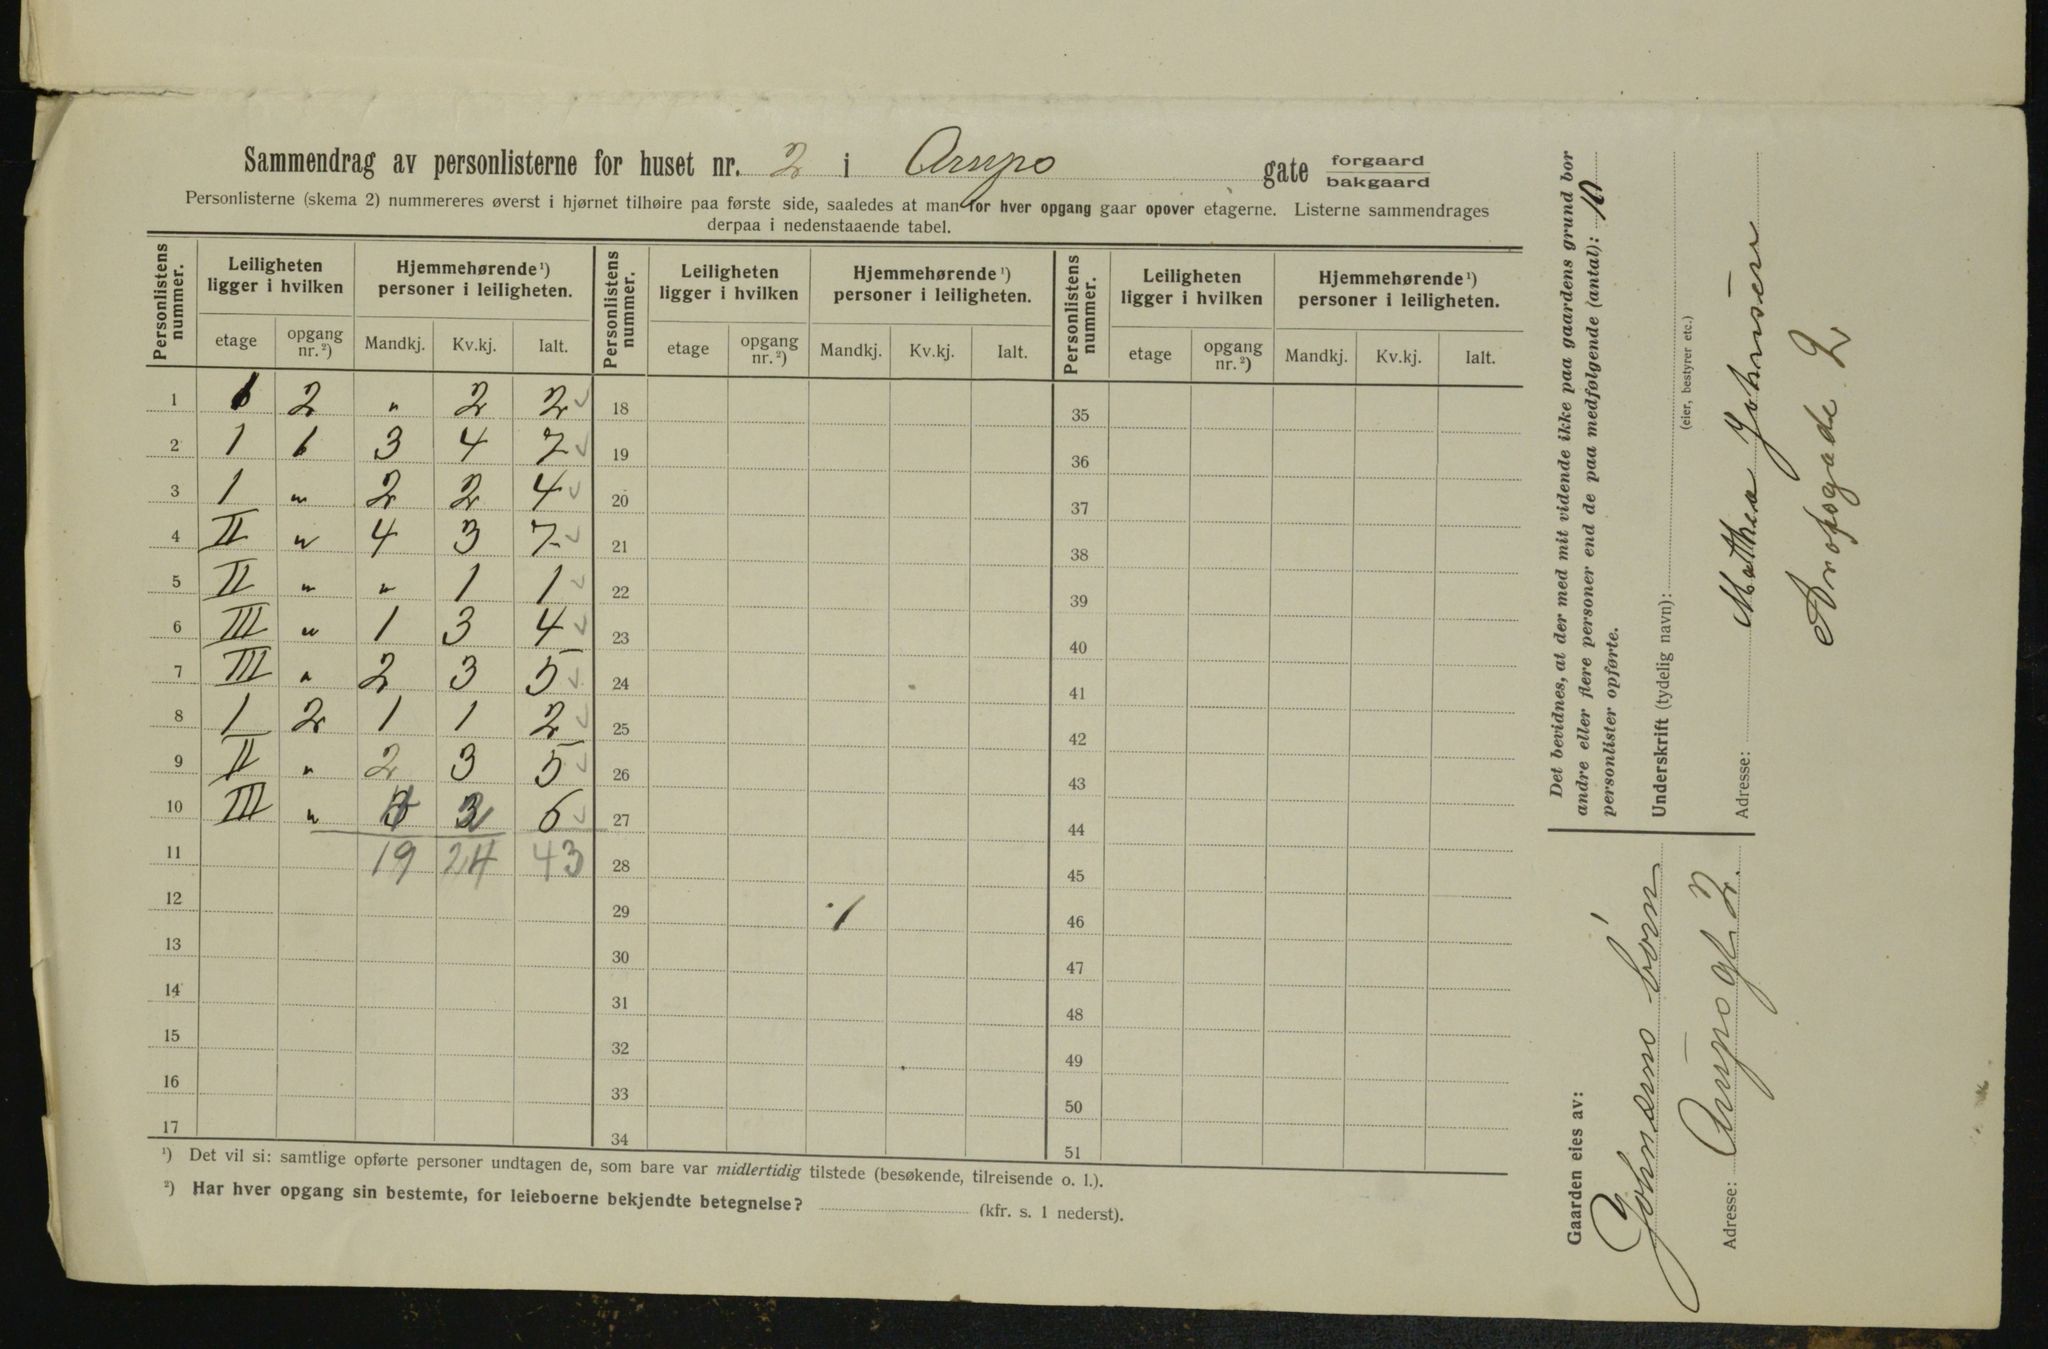 Sammendrag av personlisterne for huset nr. 2 i Arupo gate forgaard bakgaard
Personlisterne (skema 2) nummereres øverst i hjørnet tilhøire paa første side, saaledes at man for hver opgang gaar opover etagerne. Listerne sammendrages
derpaa i nedenstaaende tabel.
Personlistens nummer. Leiligheten ligger i hvilken Hjemmehørende ¹) personer i leiligheten. Personlistens nummer. Leiligheten ligger i hvilken Hjemmehørende ¹) personer i leiligheten. Personlistens nummer. Leiligheten ligger i hvilken Hjemmehørende ¹) personer i leiligheten.
etage opgang nr. ²) Mandkj. Kv.kj. Ialt. etage opgang nr. ²) Mandkj. Kv.kj. Ialt. etage opgang nr. ²) Mandkj. Kv.kj. Ialt.
1 1 2 " 2 2 18 35
2 1 1 3 4 7 19 36
3 1 " 2 2 4 20 37
4 II " 4 3 7 21 38
5 II " " 1 1 22 39
6 III " 1 3 4 23 40
7 III " 2 3 5 24 41
8 1 2 1 1 2 25 42
9 II " 2 3 5 26 43
10 III " 4 2 6 27 44
11 19 24 43 28 45
12 29 1 46
13 30 47
14 31 48
15 32 49
16 33 50
17 34 51
¹) Det vil si: samtlige opførte personer undtagen de, som bare var midlertidig tilstede (besøkende, tilreisende o. l.).
²) Har hver opgang sin bestemte, for leieboerne bekjendte betegnelse? (kfr. s. 1 nederst).
Det bevidnes, at der med mit vidende ikke paa gaardens grund bor
andre eller flere personer end de paa medfølgende (antal): 10
personlister opførte.
Underskrift (tydelig navn):
(eier, bestyrer etc.)
Matthea Johnsen
Adresse:
Arupsgade 2
Gaarden eies av:
Johnsens børn
Adresse: Arupsgt. 2.